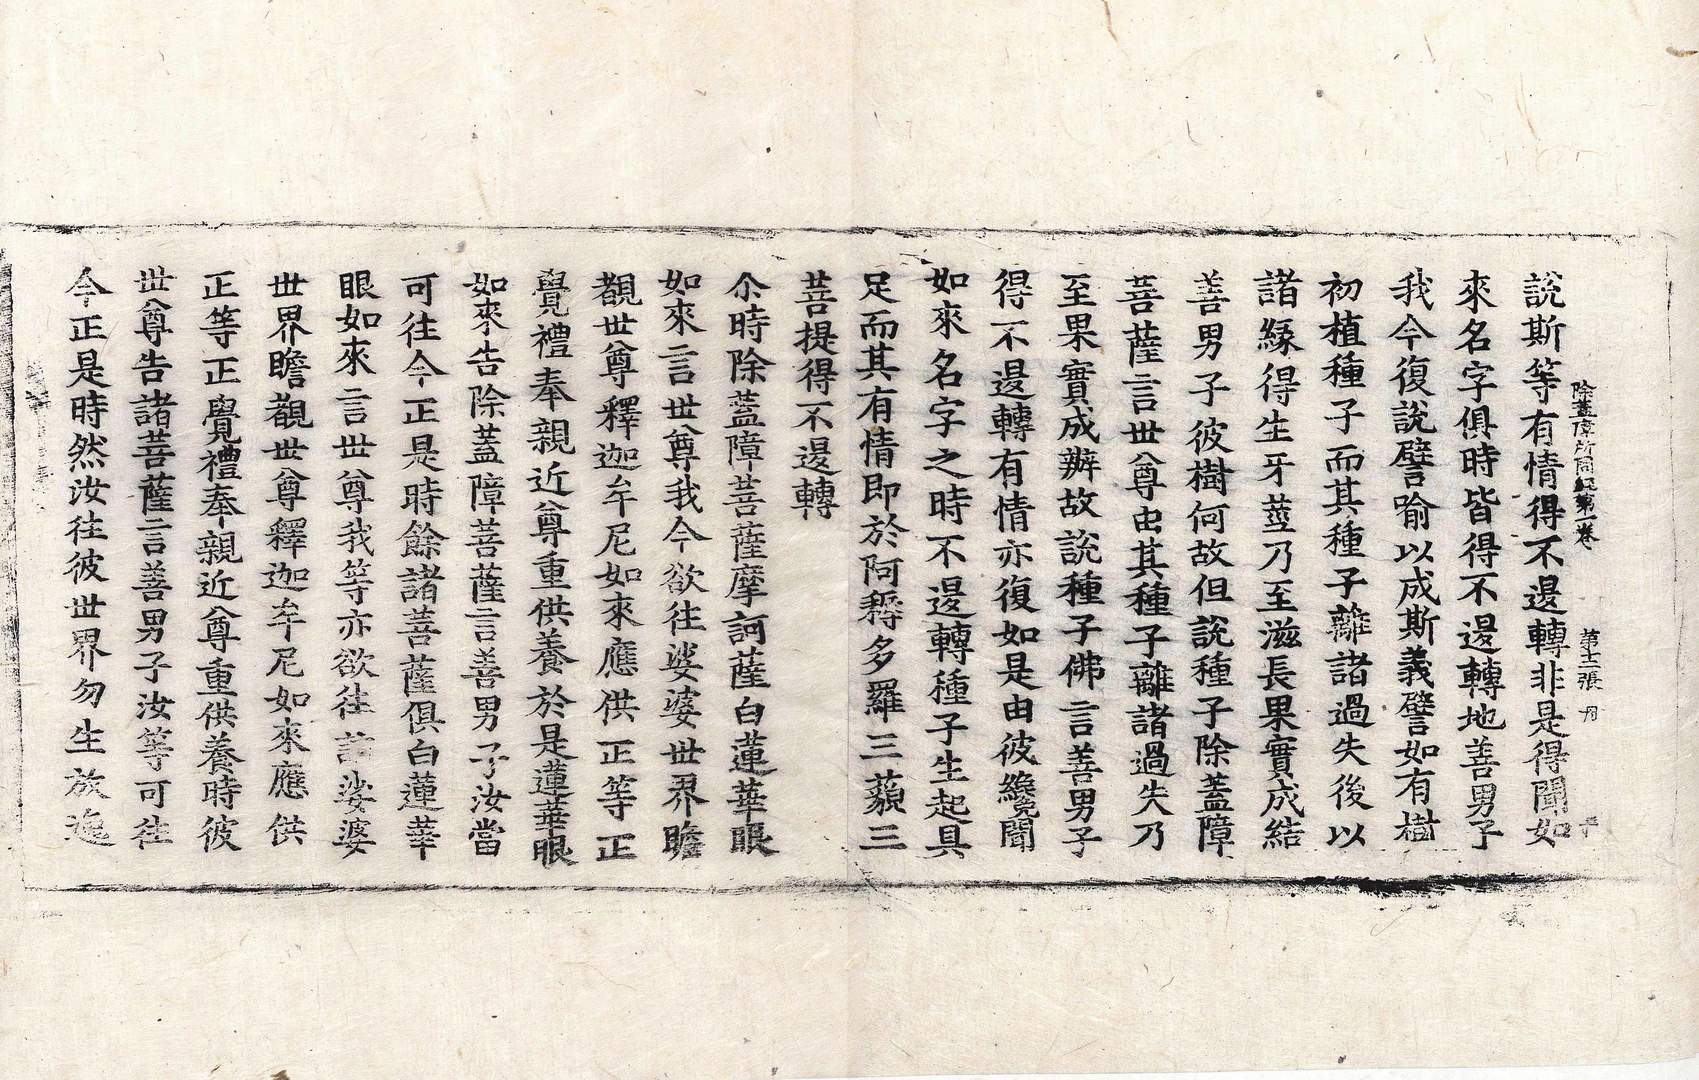 除蓋障所問經第一卷 第十二張 丹
說斯等有情得不退轉非是得聞如
來名字俱時皆得不退轉地善男子
我今復說譬喻以成斯義譬如有樹
初植種子而其種子離諸過失後以
諸緣得生牙莖乃至滋長果實成結
善男子彼樹何故但說種子除蓋障
菩薩言世尊由其種子離諸過失乃
至果實成辦故說種子佛言善男子
得不退轉有情亦復如是由彼纔聞
如來名字之時不退轉種子生起具
足而其有情即於阿耨多羅三藐三
菩提得不退轉
尒時除蓋障菩薩摩訶薩白蓮華眼
如來言世尊我今欲往娑婆世界瞻
覩世尊釋迦牟尼如來應供正等正
覺禮奉親近尊重供養於是蓮華眼
如來告除蓋障菩薩言善男子汝當
可往今正是時餘諸菩薩俱白蓮華
眼如來言世尊我等亦欲往詣娑婆
世界瞻覩世尊釋迦牟尼如來應供
正等正覺禮奉親近尊重供養時彼
世尊告諸菩薩言善男子汝等可往
今正是時然汝往彼世界勿生放逸